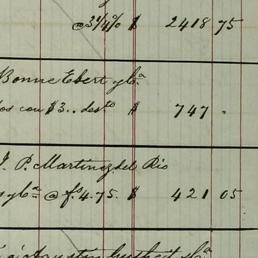 @ 3¼% $ 2418 75
Bonne Ebert y Cª
os con $3.. desto $ 747 .
J. P. Martinez del Rio
y Cª @ fs 4.75. $ 421 05